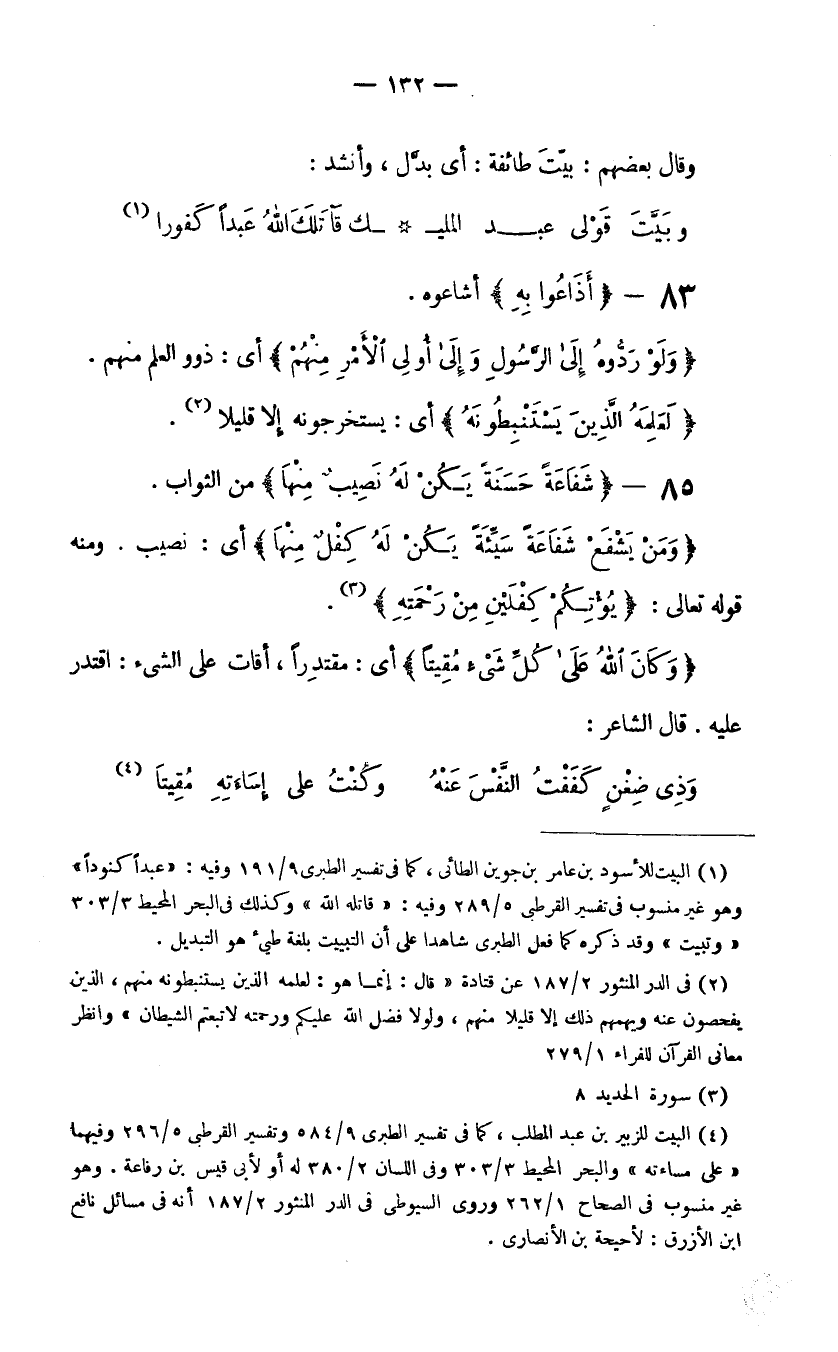 — ١٣٢ —
وقال بعضهم : بيّتَ طائفة : أى بدَّل ، وأنشد :
وبَيَّتَ قَوْلى عبــد المليـ * ـك قَاتَلَكَ اللهُ عَبداً كَفورا (١)
٨٣ – ﴿ أَذَاعُوا بِهِ ﴾ أشاعوه .
﴿ وَلَوْ رَدُّوهُ إِلَىٰ الرَّسُولِ وَإِلَىٰ أُولِى ٱلْأَمْرِ مِنْهُمْ ﴾ أى : ذوو العلم منهم .
﴿ لَعَلِمَهُ الَّذِينَ يَسْتَنْبِطُونَهُ ﴾ أى : يستخرجونه إلا قليلا (٢) .
٨٥ – ﴿ شَفَاعَةً حَسَنَةً يَكُنْ لَهُ نَصِيبٌ مِنْهَا ﴾ من الثواب .
﴿ وَمَنْ يَشْفَعْ شَفَاعَةً سَيِّئَةً يَكُنْ لَهُ كِفْلٌ مِنْهَا ﴾ أى : نصيب . ومنه
قوله تعالى : ﴿ يُؤْتِكُمْ كِفْلَيْنِ مِنْ رَحْمَتِهِ ﴾ (٣) .
﴿ وَكَانَ ٱللهُ عَلَىٰ كُلِّ شَىْءٍ مُقِيتاً ﴾ أى : مقتدِراً ، أقات على الشىء : اقتدر
عليه . قال الشاعر :
وَذِى ضِغْنٍ كَفَفْتُ النَّفْسَ عَنْهُ وَكُنْتُ على إِسَاءَتِهِ مُقِيتاَ (٤)
(١) البيت للأسود بن عامر بن جوين الطائى ، كما فى تفسير الطبرى ١٩١/٩ وفيه : «عبداً كنوداً»
وهو غير منسوب فى تفسير القرطبى ٢٨٩/٥ وفيه : « قاتله الله » وكذلك فى البحر المحيط ٣٠٣/٣
« وتبيت » وقد ذكره كما فعل الطبرى شاهدا على أن التبييت بلغة طيء هو التبديل .
(٢) فى الدر المنثور ١٨٧/٢ عن قتادة « قال : إنما هو : لعلمه الذين يستنبطونه منهم ، الذين
يفحصون عنه ويهمهم ذلك إلا قليلا منهم ، ولولا فضل الله عليكم ورحمته لاتبعتم الشيطان » وانظر
معانى القرآن للفراء ٢٧٩/١
(٣) سورة الحديد ٨
(٤) البيت للزبير بن عبد المطلب ، كما فى تفسير الطبرى ٥٨٤/٩ وتفسير القرطبى ٢٩٦/٥ وفيهما
« على مساءته » والبحر المحيط ٣٠٣/٣ وفى اللسان ٣٨٠/٢ له أو لأبى قيس بن رفاعة . وهو
غير منسوب فى الصحاح ٢٦٢/١ وروى السيوطى فى الدر المنثور ١٨٧/٢ أنه فى مسائل نافع
ابن الأزرق : لأحيحة بن الأنصارى .